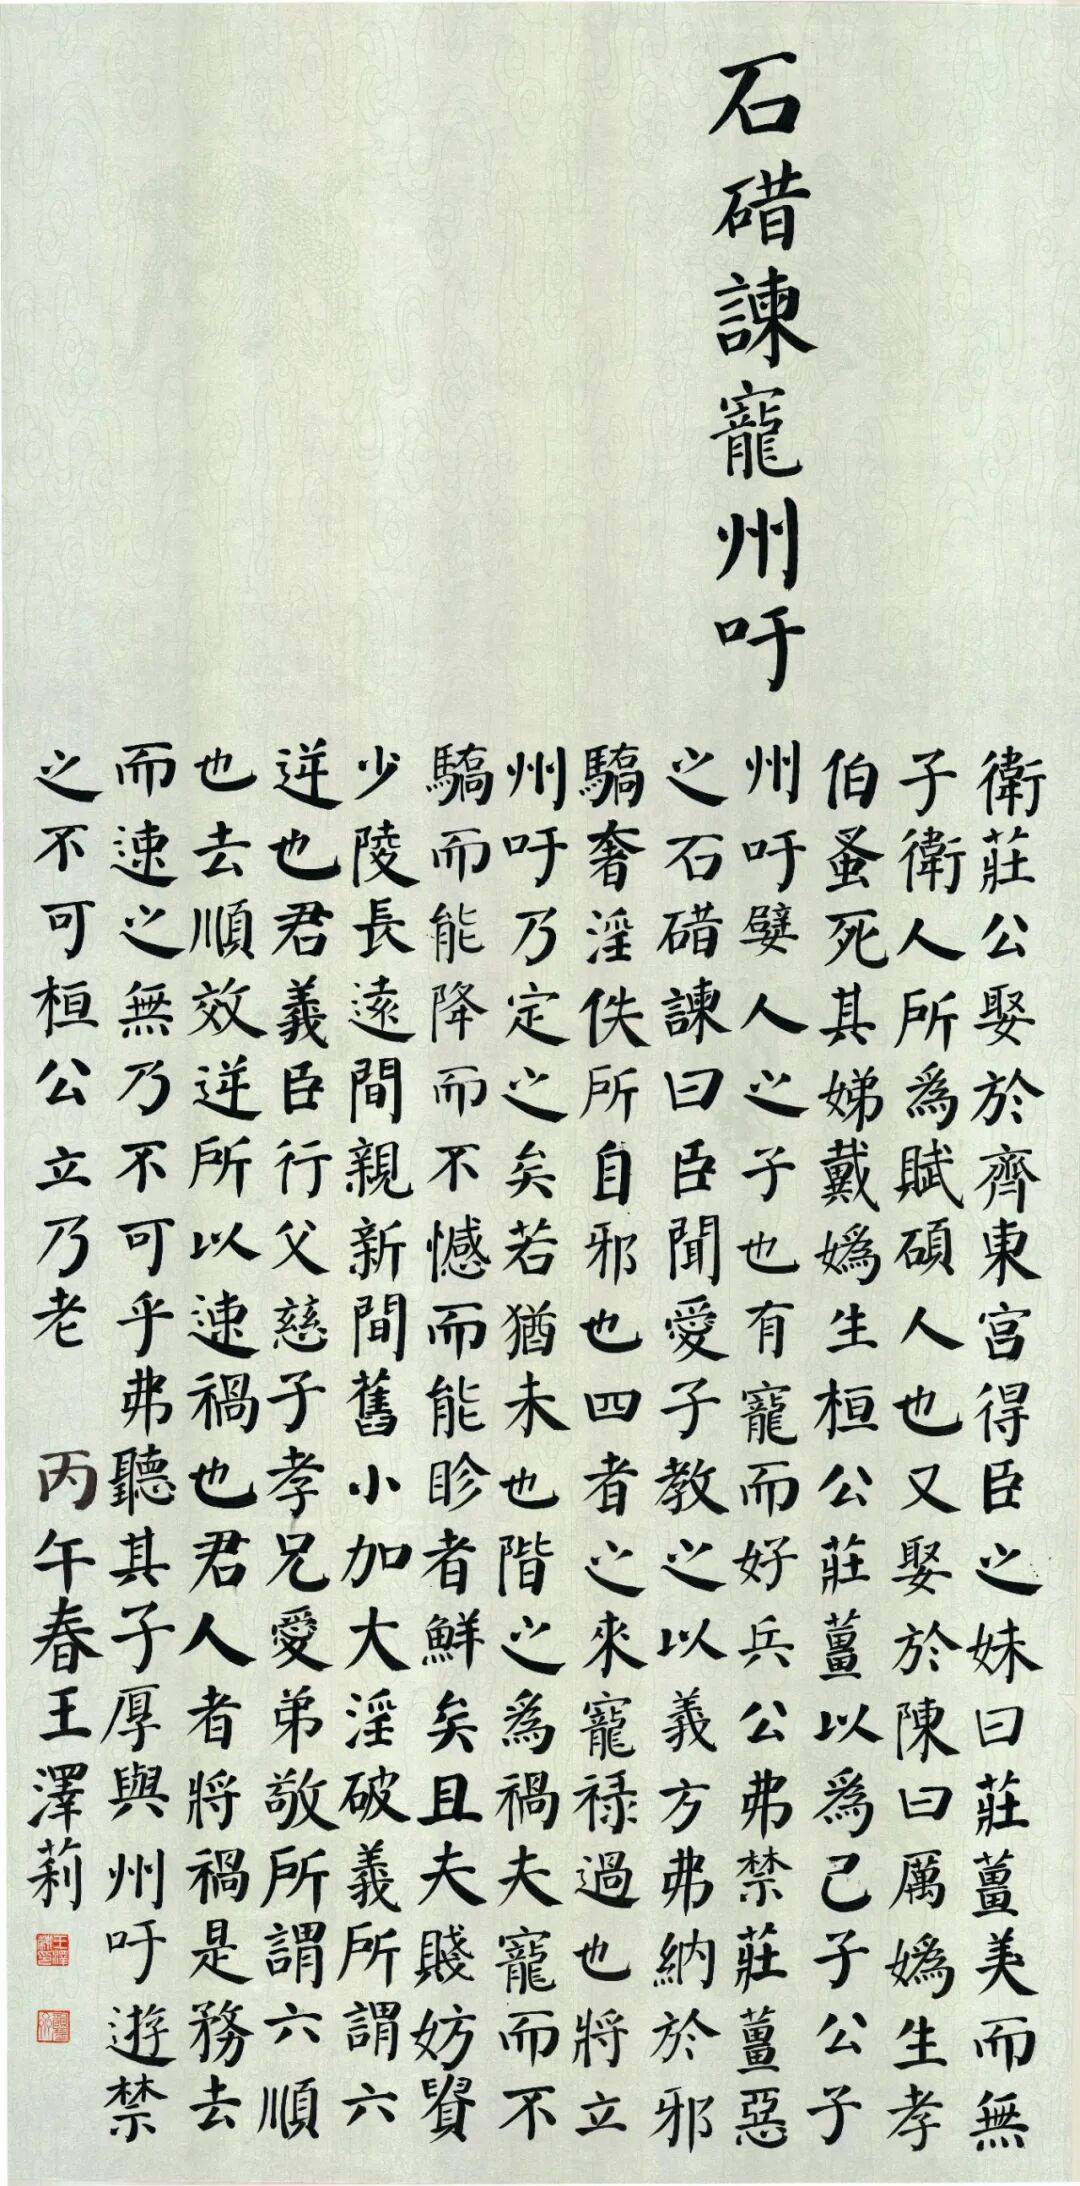 石碏諫寵州吁
衛莊公娶於齊東宮得臣之妹曰莊薑美而無
子衛人所為賦碩人也又娶於陳曰厲媯生孝
伯蚤死其娣戴媯生桓公莊薑以為己子公子
州吁嬖人之子也有寵而好兵公弗禁莊薑惡
之石碏諫曰臣聞愛子教之以義方弗納於邪
驕奢淫佚所自邪也四者之來寵祿過也將立
州吁乃定之矣若猶未也階之為禍夫寵而不
驕而能降而不憾而能眕者鮮矣且夫賤妨貴
少陵長遠間親新間舊小加大淫破義所謂六
逆也君義臣行父慈子孝兄愛弟敬所謂六順
也去順效逆所以速禍也君人者將禍是務去
而速之無乃不可乎弗聽其子厚與州吁遊禁
之不可桓公立乃老 丙午春王澤莉